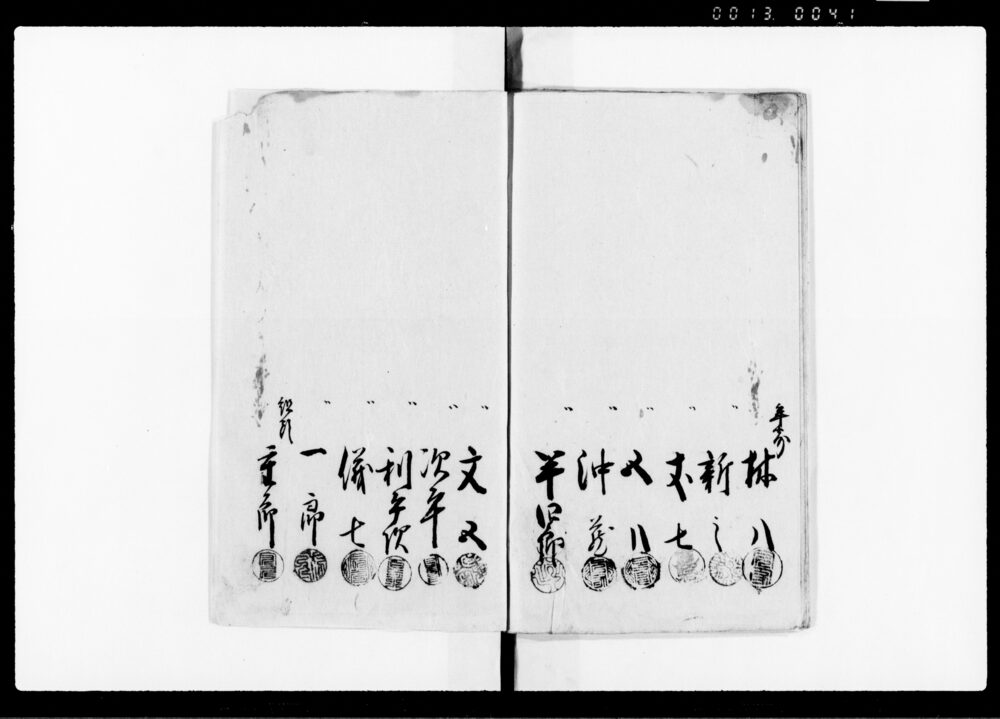 0013 0041
年寄
林八
〃
新之
〃
丈七
〃
又八
〃
沖蔵
〃
半四郎
〃
文又
〃
次平
〃
利平次
〃
儀七
〃
一郎
組頭
重郎